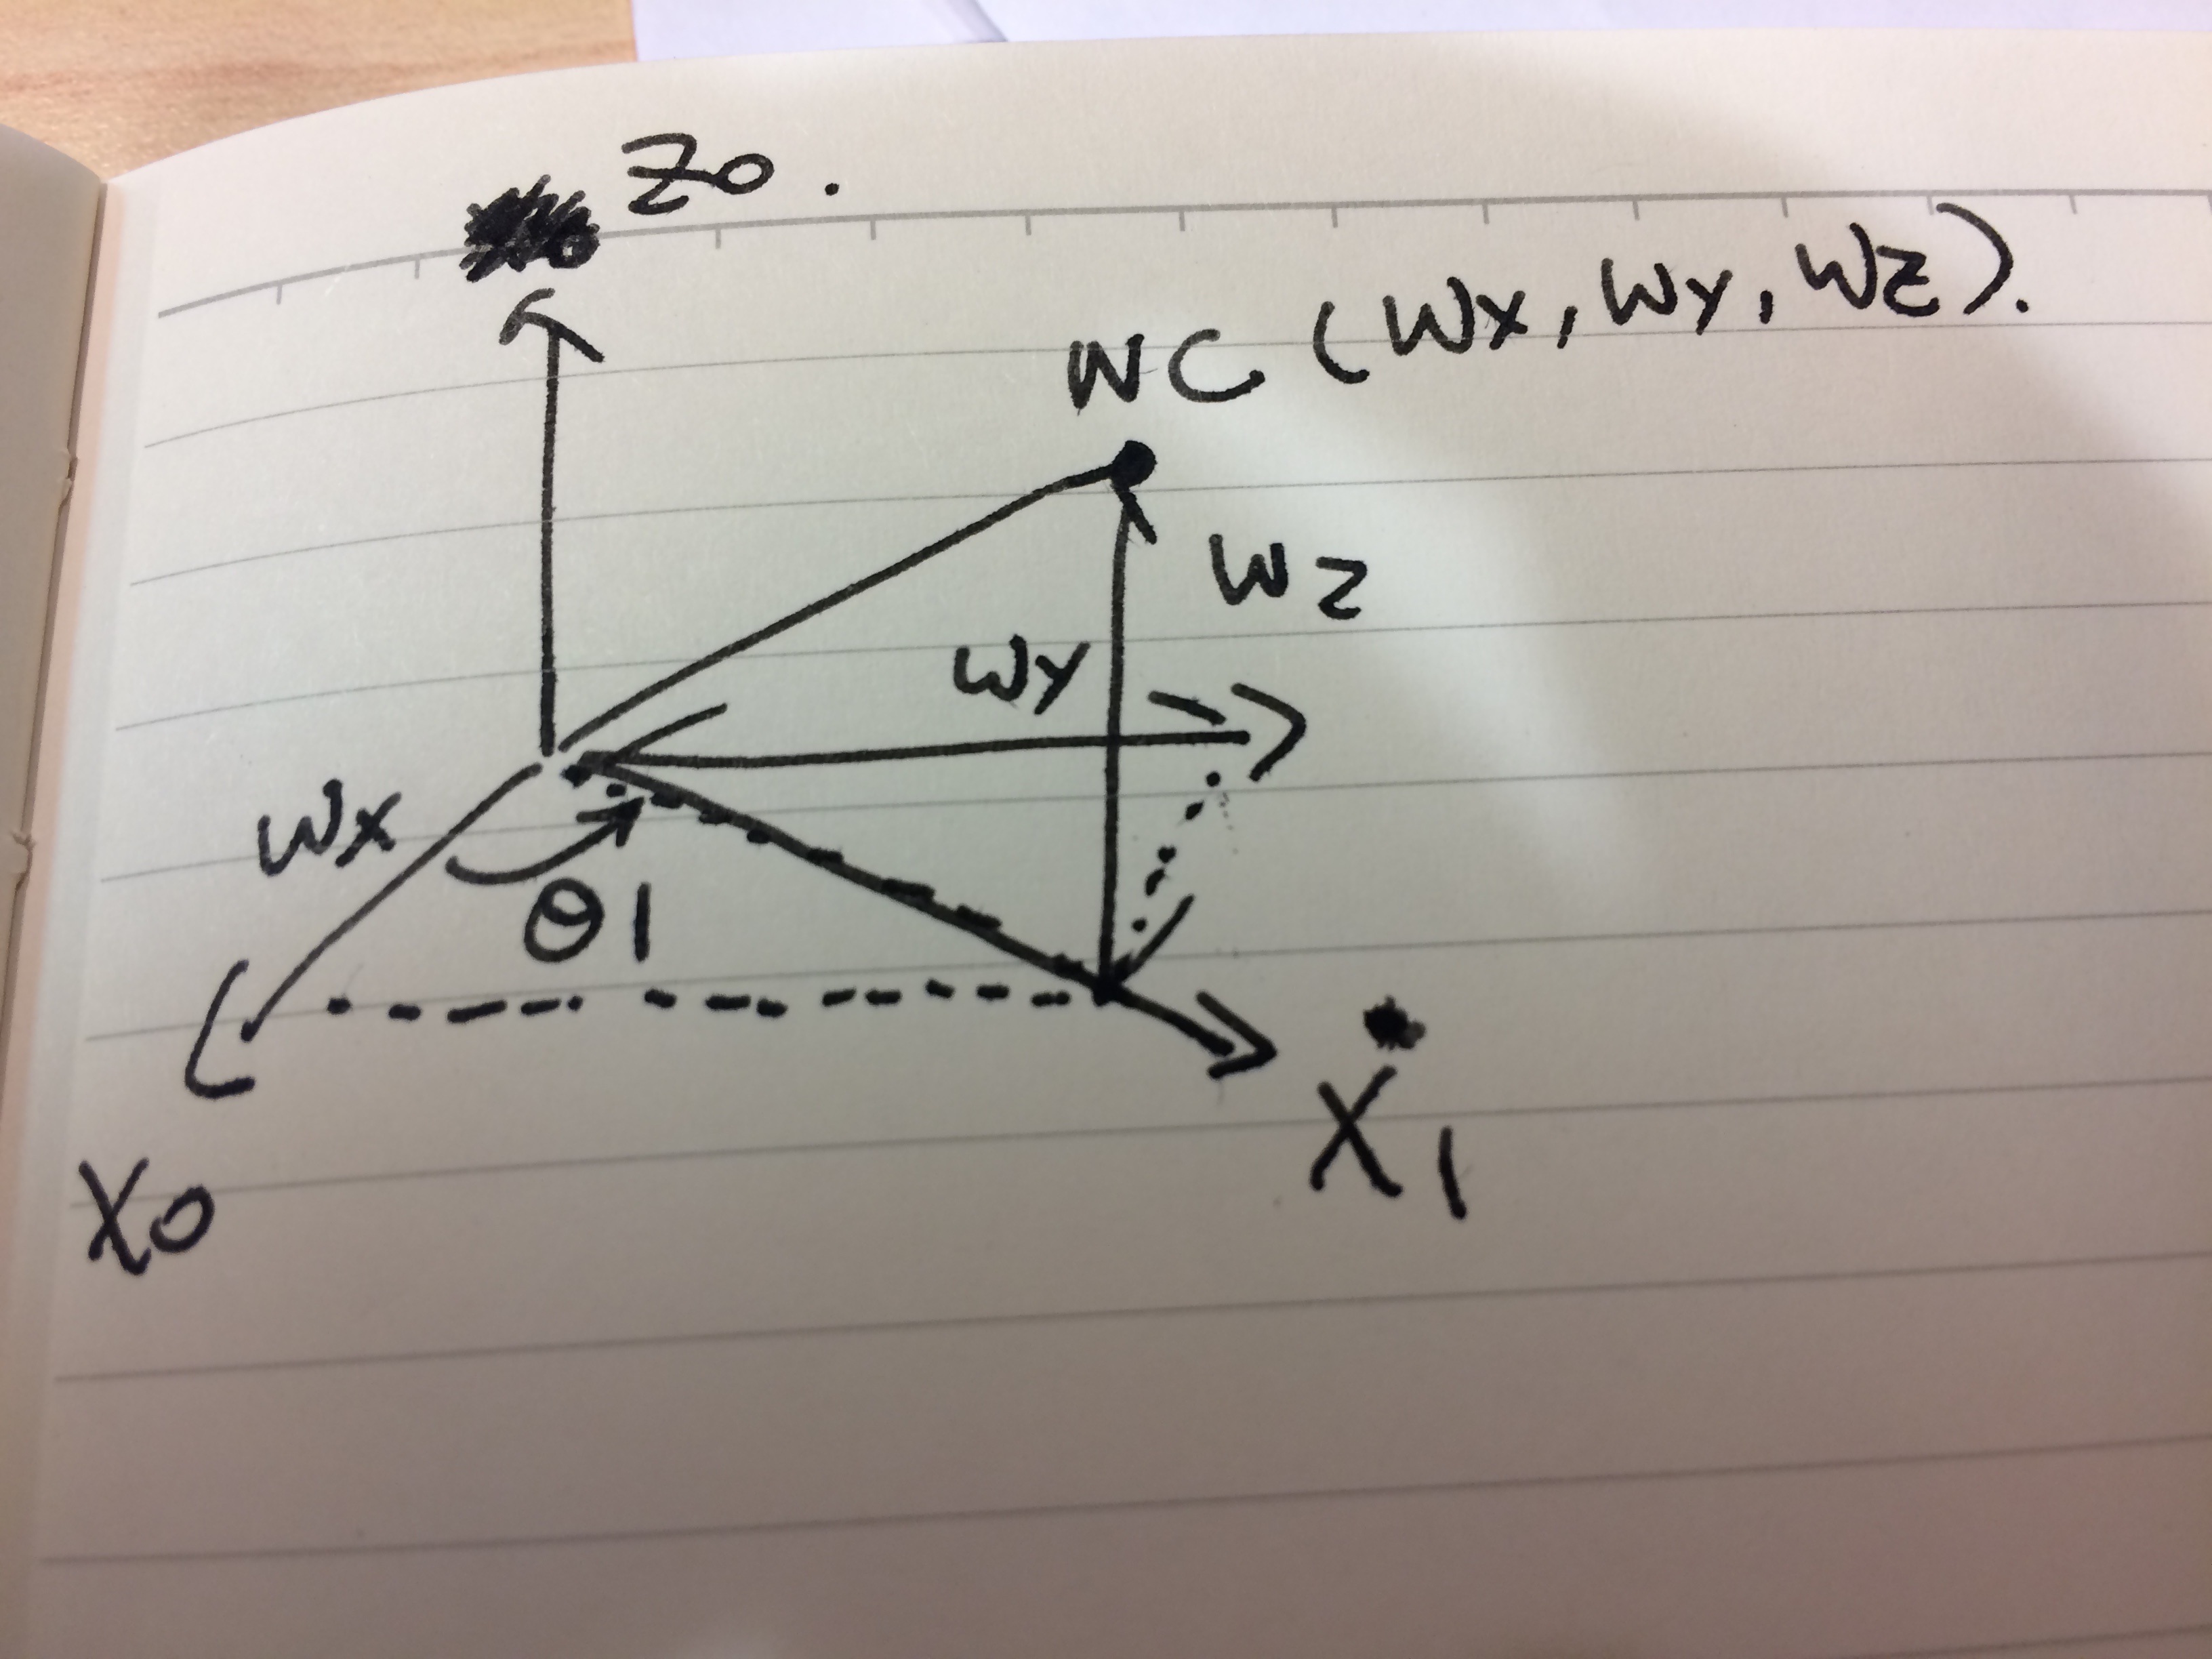 Z0.
WC (Wx, Wy, Wz).
Wz
Wy
Wx
θ1
X1
X0